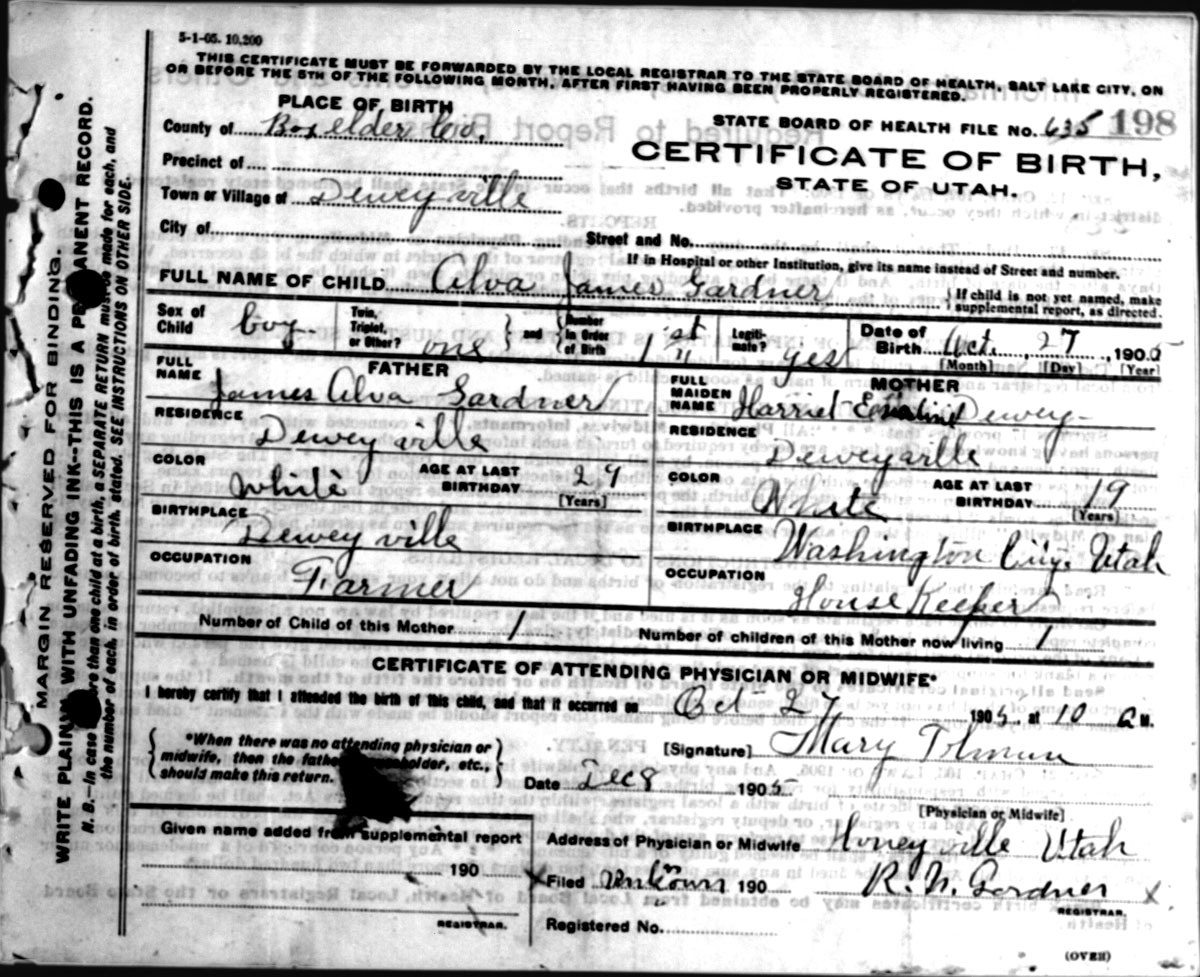 5-1-05. 10,200
THIS CERTIFICATE MUST BE FORWARDED BY THE LOCAL REGISTRAR TO THE STATE BOARD OF HEALTH, SALT LAKE CITY, ON
OR BEFORE THE 5TH OF THE FOLLOWING MONTH, AFTER FIRST HAVING BEEN PROPERLY REGISTERED.
PLACE OF BIRTH
County of Boxelder Co.
STATE BOARD OF HEALTH FILE No. 635 198
Precinct of
CERTIFICATE OF BIRTH,
STATE OF UTAH.
Town or Village of Deweyville
City of
Street and No.
If in Hospital or other Institution, give its name instead of Street and number.
FULL NAME OF CHILD Alva James Gardner
{ If child is not yet named, make supplemental report, as directed.
Sex of Child boy Twin, Triplet, or Other? one } and { Number in Order of Birth 1st Legitimate? yes Date of Birth Oct. 27, 1905
[Month] [Day] [Year]
FATHER
FULL NAME James Alva Gardner
RESIDENCE Deweyville
COLOR White AGE AT LAST BIRTHDAY 29 [Years]
BIRTHPLACE Deweyville
OCCUPATION Farmer
MOTHER
FULL MAIDEN NAME Harriet Dewey
RESIDENCE Deweyville
COLOR White AGE AT LAST BIRTHDAY 19 [Years]
BIRTHPLACE Washington City, Utah
OCCUPATION House Keeper
Number of Child of this Mother 1 Number of children of this Mother now living 1
CERTIFICATE OF ATTENDING PHYSICIAN OR MIDWIFE*
I hereby certify that I attended the birth of this child, and that it occurred on Oct 27 1905 at 10 a M.
{ *When there was no attending physician or
midwife, then the father, householder, etc.,
should make this return. }
[Signature] Mary Tolman
Date Dec 8 1905
[Physician or Midwife]
Given name added from supplemental report
190
REGISTRAR.
Address of Physician or Midwife Honeyville Utah
x Filed Unknown 190 R. N. Gardner x
REGISTRAR.
Registered No.
(OVER)
MARGIN RESERVED FOR BINDING.
WRITE PLAINLY WITH UNFADING INK--THIS IS A PERMANENT RECORD.
N. B.—In case of more than one child at a birth, a SEPARATE RETURN must be made for each, and
the number of each, in order of birth, stated. SEE INSTRUCTIONS ON OTHER SIDE.